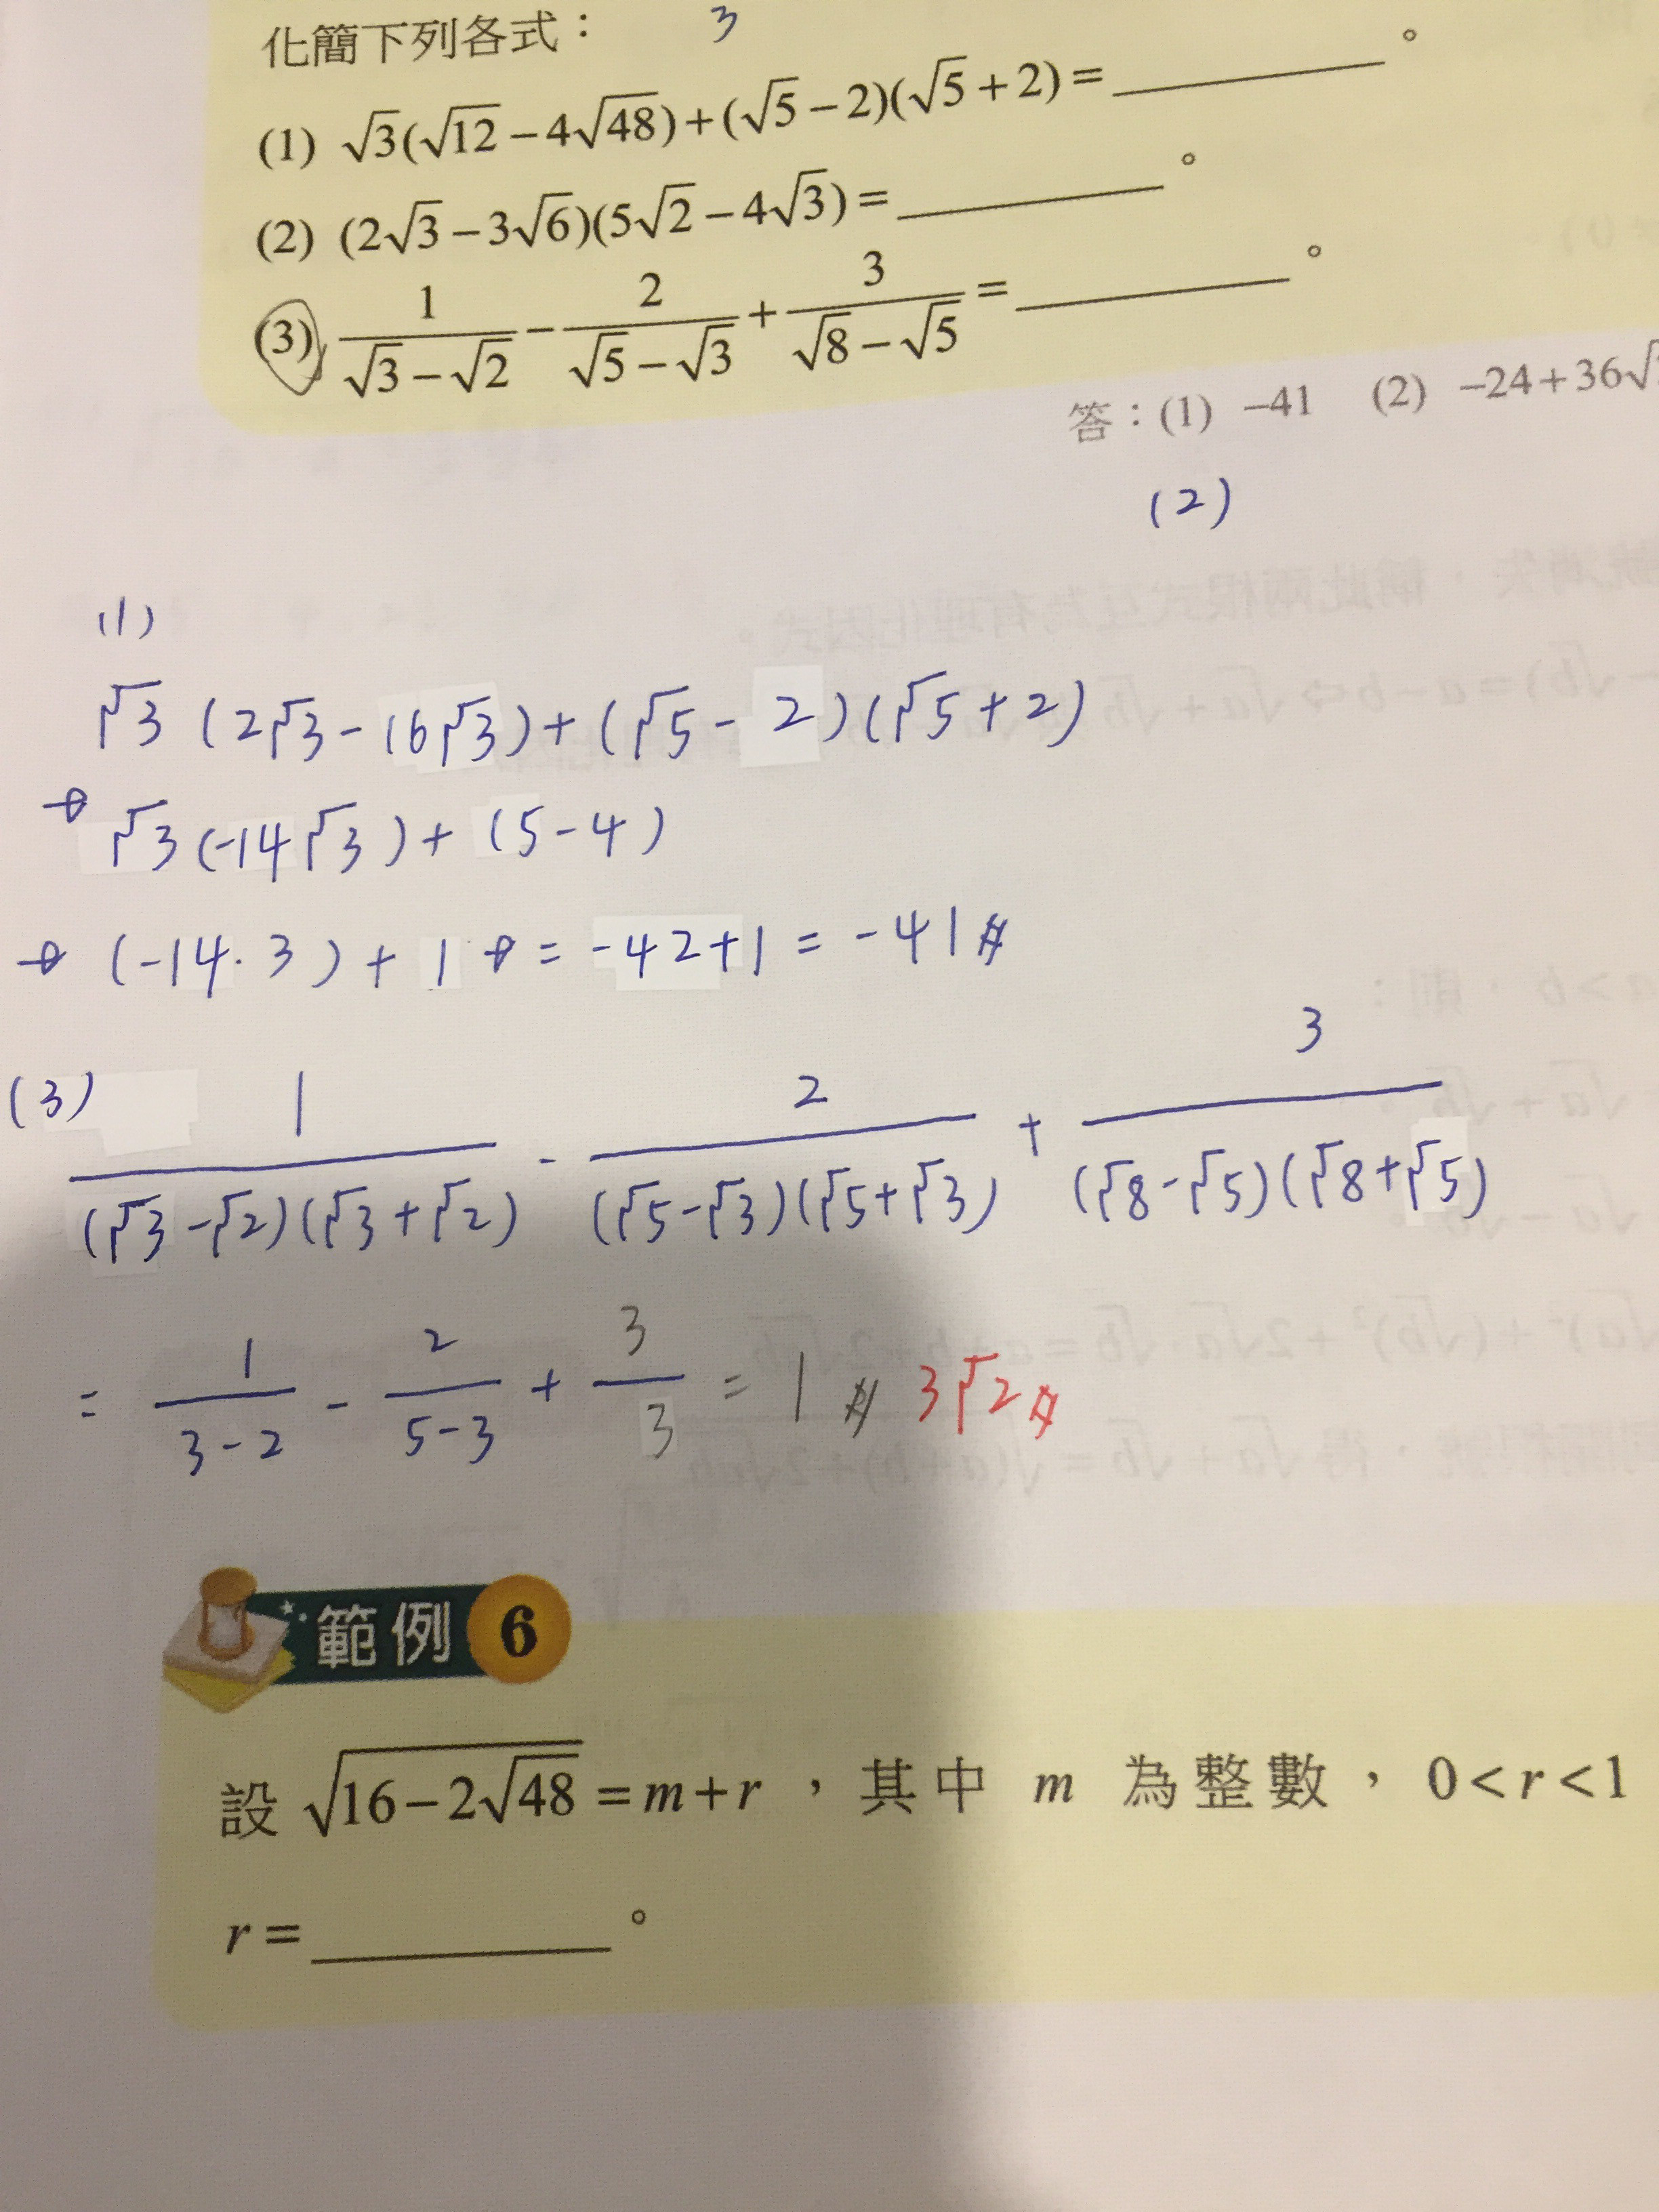 化簡下列各式： 3
(1) √3(√12 − 4√48) + (√5 − 2)(√5 + 2) = ________。
(2) (2√3 − 3√6)(5√2 − 4√3) = ________。
(3) 1/(√3 − √2) − 2/(√5 − √3) + 3/(√8 − √5) = ________。
答：(1) −41 (2) −24 + 36√
(2)
(1)
√3 (2√3 - 16√3) + (√5 - 2)(√5 + 2)
→ √3 (-14√3) + (5 - 4)
→ (-14 · 3) + 1 → = -42 + 1 = -41 #
(3) 1/((√3 - √2)(√3 + √2)) - 2/((√5 - √3)(√5 + √3)) + 3/((√8 - √5)(√8 + √5))
= 1/(3 - 2) - 2/(5 - 3) + 3/3 = 1 # 3√2 #
範例 6
設 √(16 − 2√48) = m + r ，其中 m 為整數，0 < r < 1
r = ________。